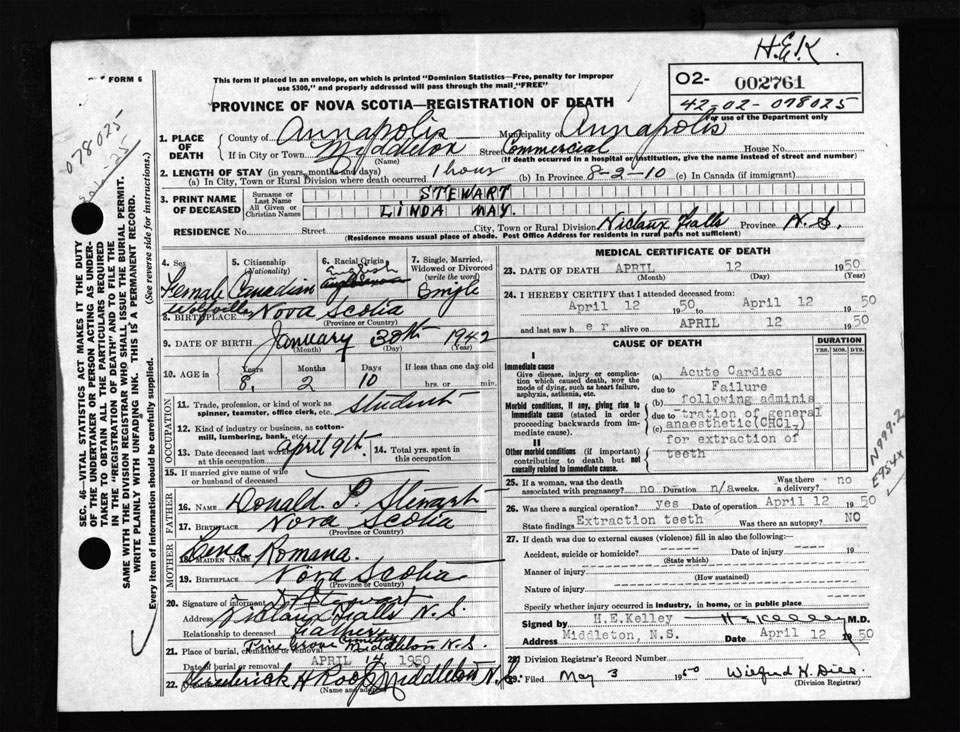 H.E.K.
FORM 6
This form if placed in an envelope, on which is printed "Dominion Statistics—Free, penalty for improper
use $300," and properly addressed will pass through the mail "FREE"
02- 002761
42-02-078025
For use of the Department only
PROVINCE OF NOVA SCOTIA—REGISTRATION OF DEATH
078025
SEC. 46—VITAL STATISTICS ACT MAKES IT THE DUTY
OF THE UNDERTAKER OR PERSON ACTING AS UNDER-
TAKER TO OBTAIN ALL THE PARTICULARS REQUIRED
IN THE "REGISTRATION OF DEATH" AND TO FILE THE
SAME WITH THE DIVISION REGISTRAR WHO SHALL ISSUE THE BURIAL PERMIT.
WRITE PLAINLY WITH UNFADING INK. THIS IS A PERMANENT RECORD.
Every item of information should be carefully supplied. (See reverse side for instructions.)
1. PLACE OF DEATH County of Annapolis Municipality of Annapolis
If in City or Town Middleton Street Commercial House No.
(Name) (If death occurred in a hospital or institution, give the name instead of street and number)
2. LENGTH OF STAY (in years, months and days)
(a) In City, Town or Rural Division where death occurred 1 hour (b) In Province 8-2-10 (c) In Canada (if immigrant)
3. PRINT NAME OF DECEASED Surname or Last Name STEWART
All Given or Christian Names LINDA MAY.
RESIDENCE No. Street City, Town or Rural Division Nictaux Falls Province N.S.
(Residence means usual place of abode. Post Office Address for residents in rural parts not sufficient)
4. Sex 5. Citizenship (Nationality) 6. Racial Origin 7. Single, Married, Widowed or Divorced (write the word)
Female Canadian English Single
8. BIRTHPLACE Wolfville Nova Scotia
(Province or Country)
9. DATE OF BIRTH January 30th 1942
(Month) (Day) (Year)
10. AGE in Years Months Days If less than one day old
8. 2 10 hrs. or min.
OCCUPATION
11. Trade, profession, or kind of work as
spinner, teamster, office clerk, etc. student
12. Kind of industry or business, as cotton-
mill, lumbering, bank, etc.
13. Date deceased last worked at this occupation April 9th. 14. Total yrs. spent in this occupation
15. If married give name of wife
or husband of deceased
FATHER
16. Name Donald P. Stewart
17. Birthplace Nova Scotia
(Province or Country)
MOTHER
18. Maiden Name Lena Romans.
19. Birthplace Nova Scotia
(Province or Country)
20. Signature of informant D P Stewart
Address Nictaux Falls N.S.
Relationship to deceased Father
21. Place of burial, cremation or removal Pine Grove Middleton N.S.
Date of burial or removal APRIL 14 1950
22. Frederick H Roop Middleton N.S.
(Name and address)
MEDICAL CERTIFICATE OF DEATH
23. DATE OF DEATH APRIL 12 1950
(Month) (Day) (Year)
24. I HEREBY CERTIFY that I attended deceased from:
April 12 1950 to April 12 1950
and last saw h er alive on APRIL 12 1950
CAUSE OF DEATH DURATION
YRS. MOS. DYS.
I
Immediate cause
Give disease, injury or complica-
tion which caused death, NOT the
mode of dying, such as heart failure,
asphyxia, asthenia, etc.
Morbid conditions, if any, giving rise to
immediate cause (stated in order
proceeding backwards from im-
mediate cause).
II
Other morbid conditions (if important)
contributing to death but not
causally related to immediate cause.
(a) Acute Cardiac
due to Failure
(b) following adminis
due to -tration of general
(c) anaesthetic(CHCl
for extraction of
teeth
N999.2
E954X
25. If a woman, was the death associated with pregnancy? no Duration n/a weeks. Was there a delivery? no
26. Was there a surgical operation? yes Date of operation April 12 1950
State findings Extraction teeth Was there an autopsy? NO
27. If death was due to external causes (violence) fill in also the following:
Accident, suicide or homicide? Date of injury 19
(State which)
Manner of injury
(How sustained)
Nature of injury
Specify whether injury occurred in industry, in home, or in public place
Signed by H.E.Kelley H E Kelley M.D.
Address Middleton, N.S. Date April 12 1950
28. Division Registrar's Record Number
29. Filed May 3 1950 Wilfrid H.
(Division Registrar)